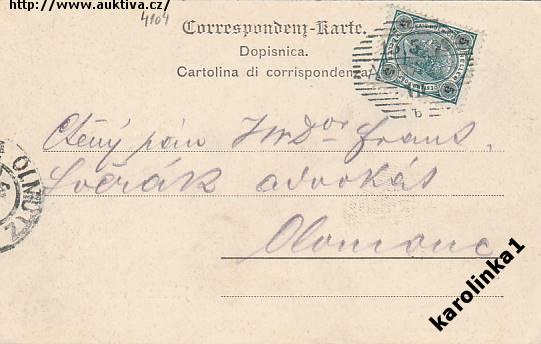 http://www.auktiva.cz/
4104
Correspondenz-Karte.
Dopisnica.
Cartolina di corrispondenza
5
b
OLMÜTZ
Ctěný pán JUDor Franz.
advokát
Olomouc
karolinka1